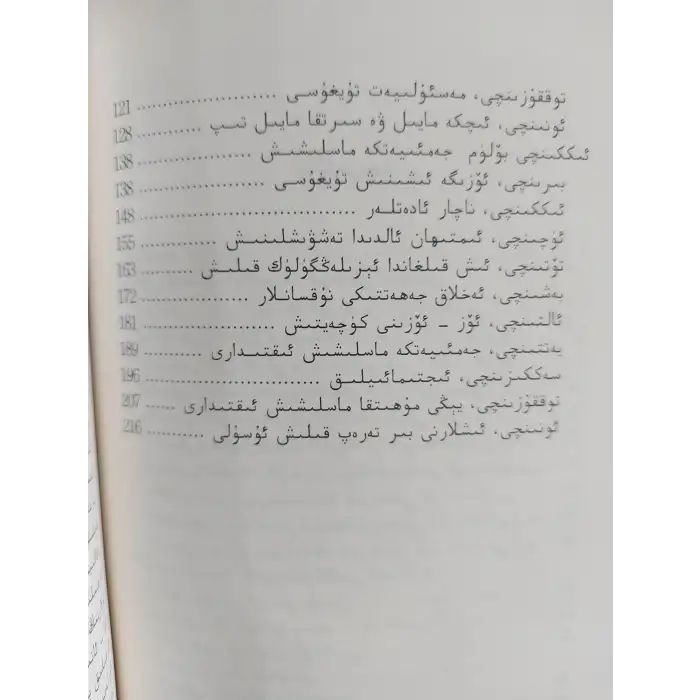 توققۇزىنچى، مەسئۇلىيەت تۇيغۇسى ........................ 121
ئونىنچى، ئىچكە مايىل ۋە سىرتقا مايىل تىپ .......... 128
ئىككىنچى بۆلۈم جەمئىيەتكە ماسلىشىش .................. 138
بىرىنچى، ئۆزىگە ئىشىنىش تۇيغۇسى .................... 138
ئىككىنچى، ناچار ئادەتلەر ................................ 148
ئۈچىنچى، ئىمتىھان ئالدىدا تەشۋىشلىنىش ............ 155
تۆتىنچى، ئىش قىلغاندا ئېزىلەڭگۈلۈك قىلىش ........ 163
بەشىنچى، ئەخلاق جەھەتتىكى نۇقسانلار .............. 172
ئالتىنچى، ئۆز - ئۆزىنى كۈچەيتىش .................... 181
يەتتىنچى، جەمئىيەتكە ماسلىشىش ئىقتىدارى .......... 189
سەككىزىنچى، ئىجتىمائىيلىق .......................... 196
توققۇزىنچى، يېڭى مۇھىتقا ماسلىشىش ئىقتىدارى ...... 207
ئونىنچى، ئىشلارنى بىر تەرەپ قىلىش ئۇسۇلى .......... 216